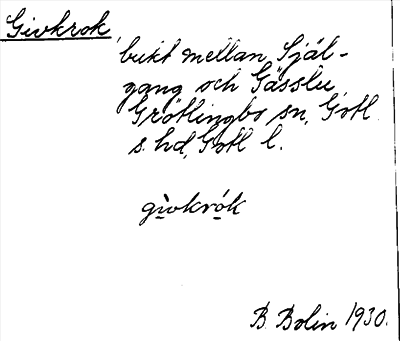 Givkrok,
bukt mellan Själ-
gang och Gässlu,
Grötlingbo sn, Gotl.
s. hd, Gotl l.
gi̱vkró̱k
B. Bolin 1930.